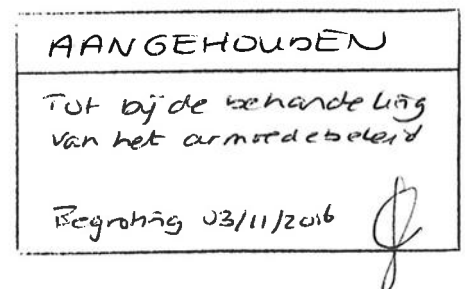 AANGEHOUDEN
Tot bij de behandeling
van het armoedebeleid
Begroting 03/11/2016